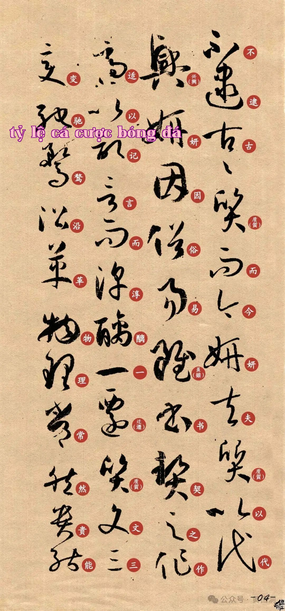 不逮古古質而今妍夫質以代
興妍因俗易雖書契之作
適以記言而淳醨一遷質文三
變馳騖沿革物理常然貴能
tỷ lệ cá cược bóng đá
公众号
-04-